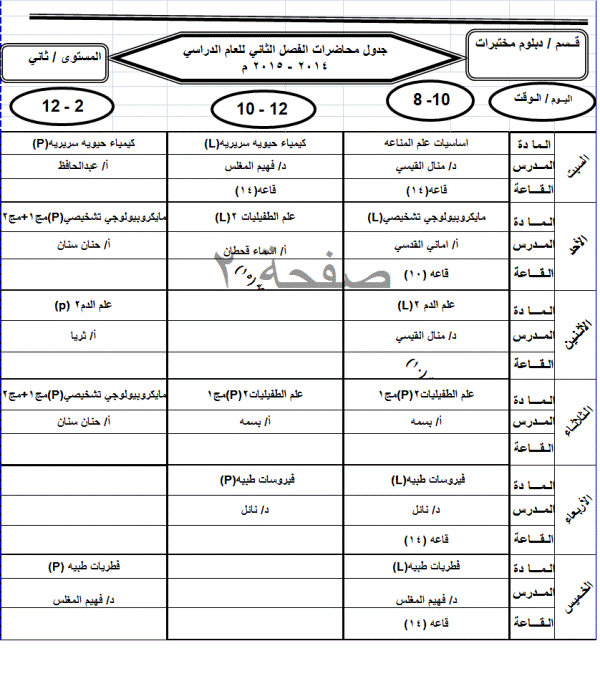 جدول محاضرات الفصل الثاني للعام الدراسي
٢٠١٤ - ٢٠١٥ م
قـسـم / دبلوم مختبرات
المستوى / ثاني
اليـوم / الـوقت
8 -10
10 - 12
12 - 2
السبت
المـا دة
اساسيات علم المناعه
كيمياء حيويه سريريه(L)
كيمياء حيويه سريريه(P)
المـدرس
د/ منال القيسي
د/ فهيم المغلس
أ/ عبدالحافظ
القـاعة
قاعه(١٤)
قاعه(١٤)
الأحد
المـا دة
مايكروبيولوجي تشخيصي(L)
علم الطفيليات ٢(L)
مايكروبيولوجي تشخيصي(P)مج١+مج٢
المـدرس
أ/ اماني القدسي
أ/ اسماء قحطان
أ/ حنان سنان
القـاعة
قاعه (١٠)
(١٥)
صفحة ٢
الأثنين
المـا دة
علم الدم ٢(L)
علم الدم٢ (p)
المـدرس
د/ منال القيسي
أ/ ثريا
القـاعة
(١٠)
الثلاثاء
المـا دة
علم الطفيليات٢(P)مج١
علم الطفيليات٢(P)مج١
مايكروبيولوجي تشخيصي(P)مج١+مج٢
المـدرس
أ/ بسمه
أ/ بسمه
أ/ حنان سنان
القـاعة
الأربعاء
المـا دة
فيروسات طبيه(L)
فيروسات طبيه(P)
المـدرس
د/ نائل
د/ نائل
القـاعة
قاعه (١٤)
الخميس
المـا دة
فطريات طبيه(L)
فطريات طبيه (P)
المـدرس
د/ فهيم المغلس
د/ فهيم المغلس
القـاعة
قاعه (١٤)